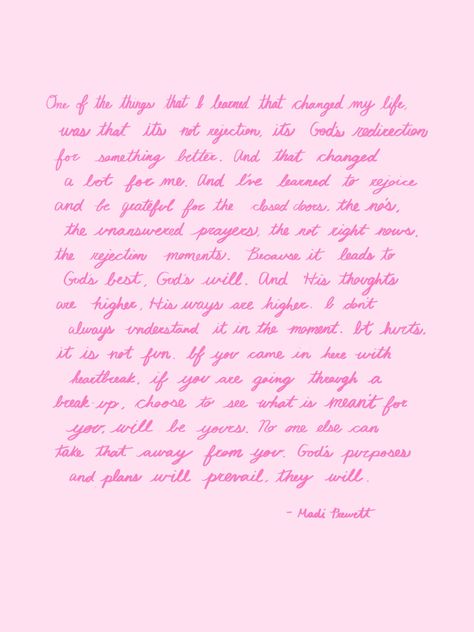 One of the things that I learned that changed my life,
was that it's not rejection, it's God's redirection
for something better. And that changed
a lot for me. And I've learned to rejoice
and be grateful for the closed doors, the no's,
the unanswered prayers, the not right nows,
the rejection moments. Because it leads to
God's best, God's will. And His thoughts
are higher, His ways are higher. I don't
always understand it in the moment. It hurts,
it is not fun. If you came in here with
heartbreak, if you are going through a
break up, choose to see what is meant for
you, will be yours. No one else can
take that away from you. God's purposes
and plans will prevail, they will.
- Madi Prewett